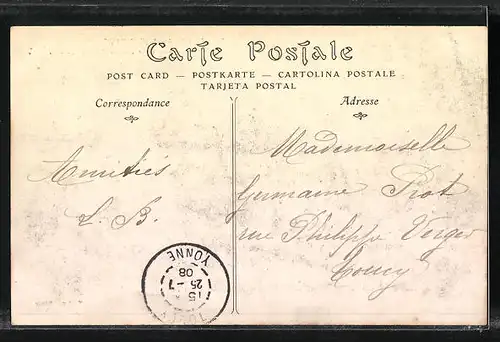 Carte Postale
POST CARD — POSTKARTE — CARTOLINA POSTALE
TARJETA POSTAL
Correspondance
Adresse
Amitiés
L. B.
Mademoiselle
Germaine Prot
rue Philippe Verger
Toucy
YONNE
15
25 - 7
08